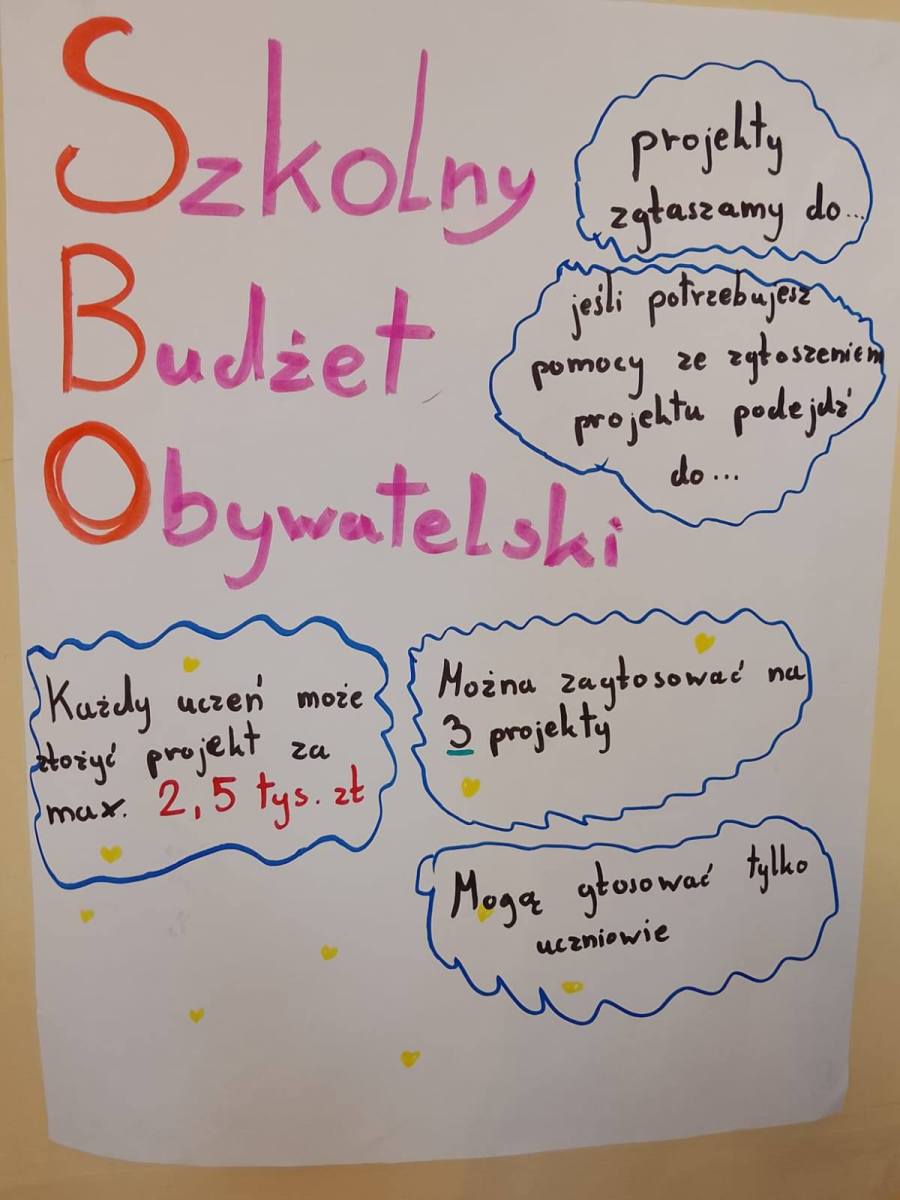 Szkolny
Budżet
Obywatelski
projekty
zgłaszamy do...
jeśli potrzebujesz
pomocy ze zgłoszeniem
projektu podejdź
do...
Każdy uczeń może
złożyć projekt za
max. 2,5 tys. zł
Można zagłosować na
3 projekty
Mogą głosować tylko
uczniowie